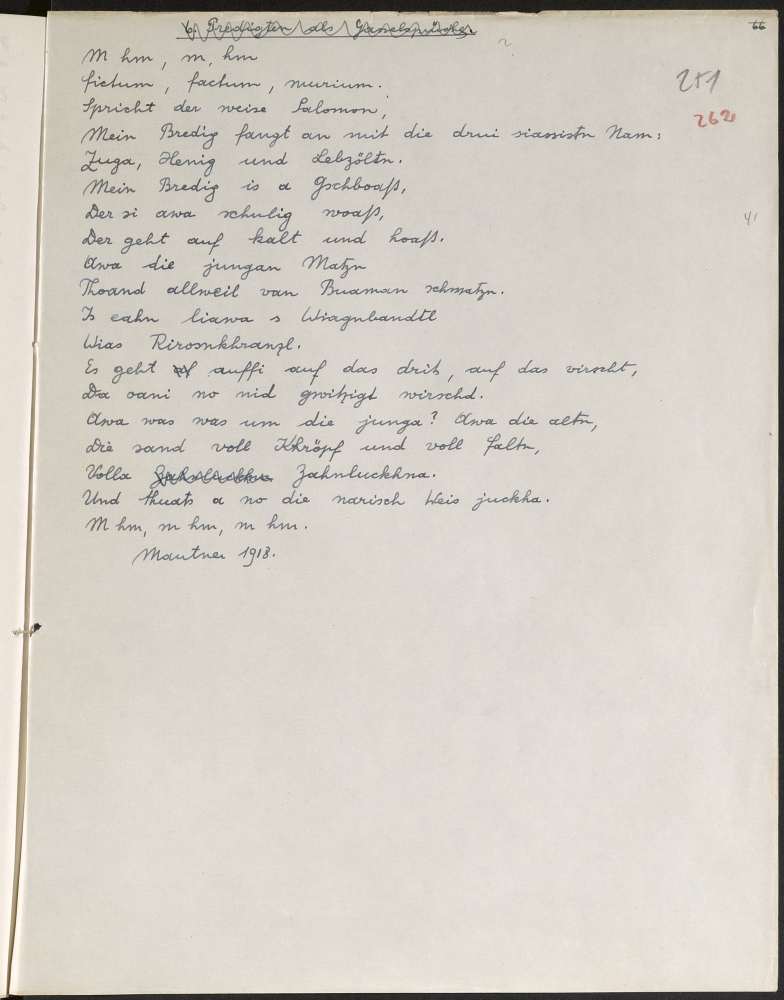 6. Predigten als Gasselsprüche.
66
M hm, m, hm
fictum, factum, murium.
Spricht der weise Salomon,
251
262
Mein Bredig fangt an mit die drui siassistn Nam:
Zuga, Henig und Lebzöltn.
Mein Bredig is a Gschboaß,
Der si awa schulig woaß,
41
Der geht auf kalt und hoaß.
Awa die jungan Matzn
Thoand allweil van Buaman schmatzn.
Is eahn liawa s Wiagnbandtl
Wias Rirosnkhranzl.
Es geht auffi auf das drit, auf das virscht,
Da oani no nid gwitzigt wirschd.
Awa was was um die junga? Awa die altn,
Die sand voll Khröpf und voll Faltn,
Volla Zahnluckhna.
Und thuats a no die narisch Weis juckha.
M hm, m hm, m hm.
Mautner 1918.